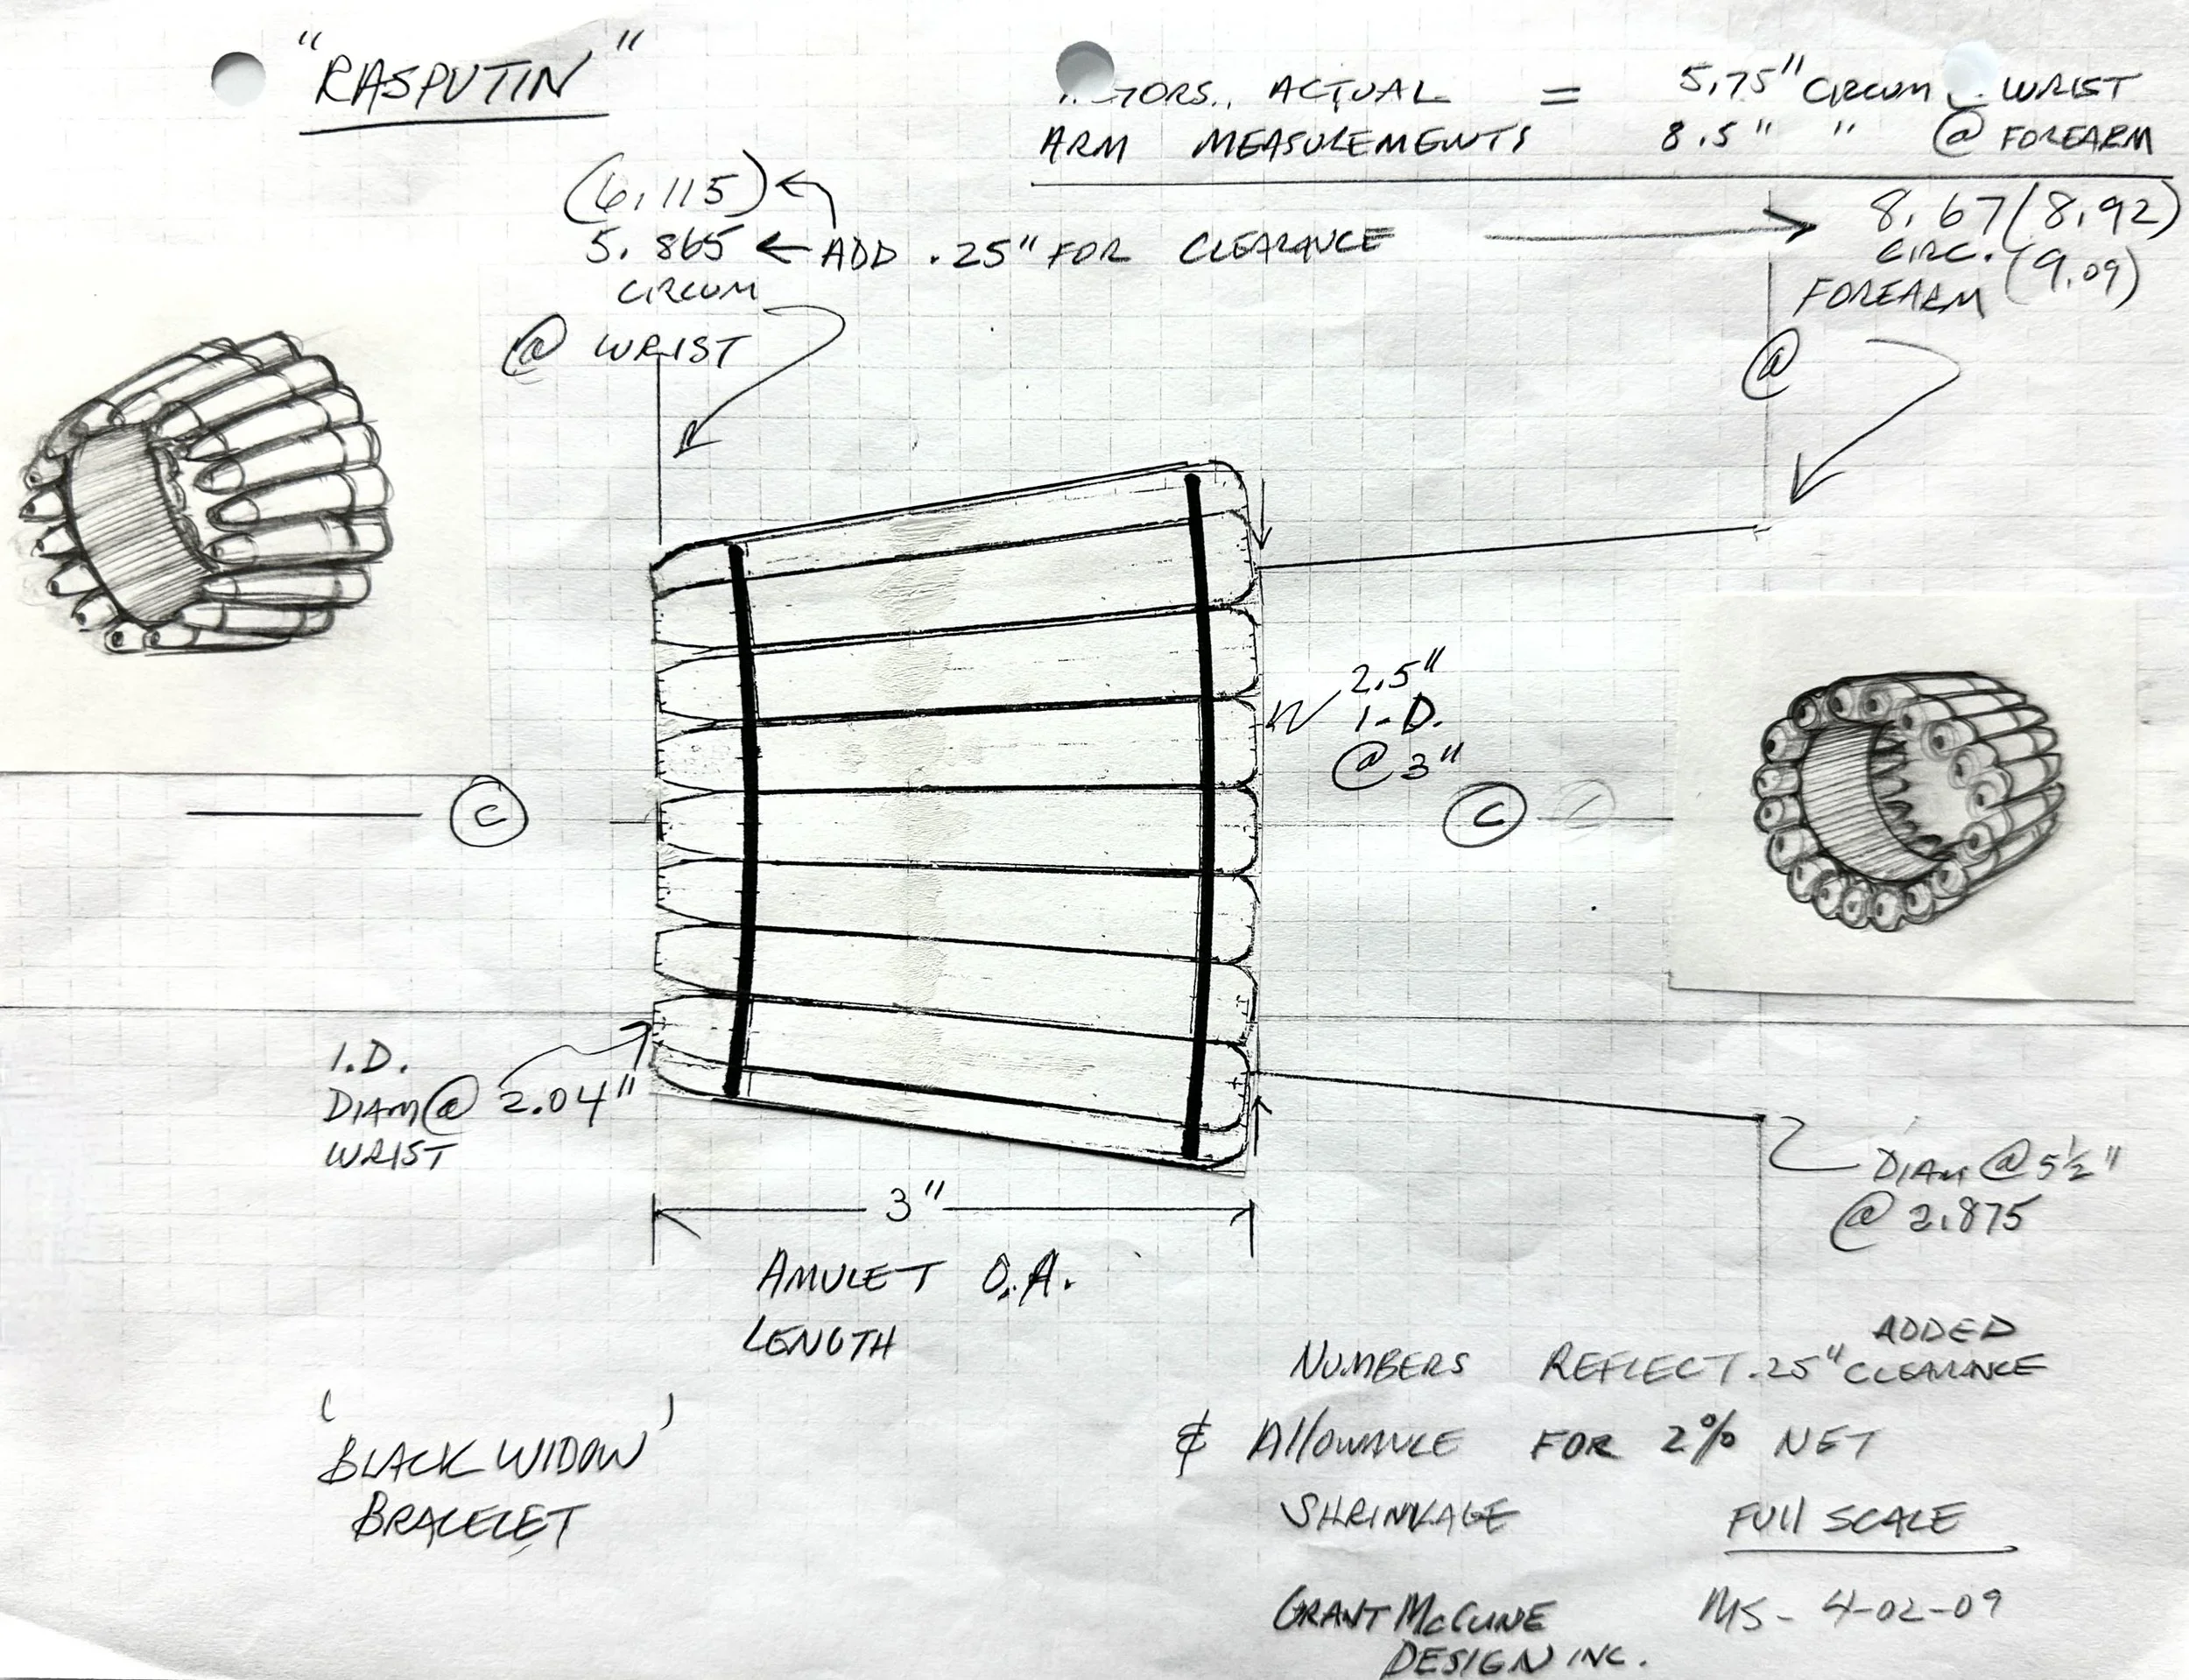 "RASPUTIN"
ACTUAL = 5.75" CIRCUM WRIST
ARM MEASUREMENTS 8.5" " @ FOREARM
(6.115)
5.865 ← ADD .25" FOR CLEARANCE
CIRCUM
@ WRIST
8.67 (8.92)
CIRC. (9.09)
FOREARM
@
2.5"
I.D.
@ 3"
C
C
I.D.
DIAM @ 2.04"
WRIST
DIAM @ 5½"
@ 2.875
3"
AMULET O.A.
LENGTH
'BLACK WIDOW'
BRACELET
ADDED
NUMBERS REFLECT .25" CLEARANCE
& Allowance FOR 2% NET
SHRINKAGE
FUll SCALE
GRANT McCUNE
DESIGN INC.
MS - 4-02-09